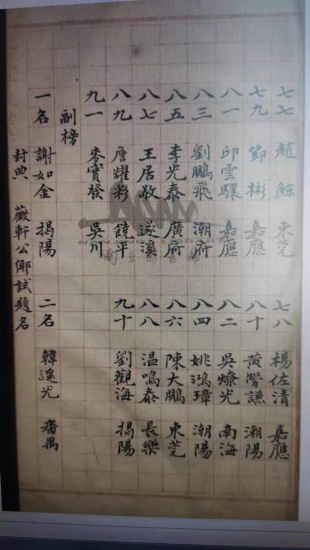 七七 趙 東莞 七八 楊佐清 嘉應
七九 鄧彬 嘉應 八十 黃勞謙 潮陽
八一 邱雲驤 嘉應 八二 吳燎光 南海
八三 劉鵬飛 潮府 八四 姚鴻璋 潮陽
八五 李光泰 廣府 八六 陳大鵬 東莞
八七 王居敬 遂溪 八八 温鳴泰 長樂
八九 唐耀彩 饒平 九十 劉觀海 揭陽
九一 麥寶發 吳川
副榜
一名 謝如金 揭陽 二名 韓遙光 番禺
封典 薇軒公鄉試題名